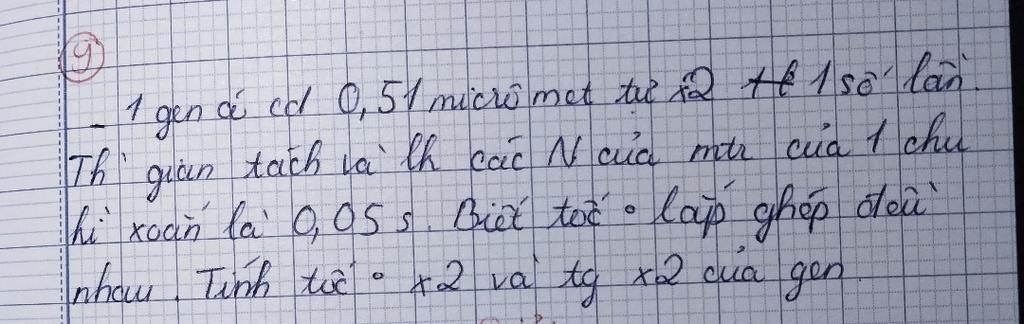 9
- 1 gen có cd 0,51 micromet tự x2 1 số lần.
Th' gian tách và lk các N của mtr của 1 chu
kì xoắn là 0,05 s. Biết tốc ° lắp ghép đều
nhau. Tính tốc ° x2 và tg x2 của gen